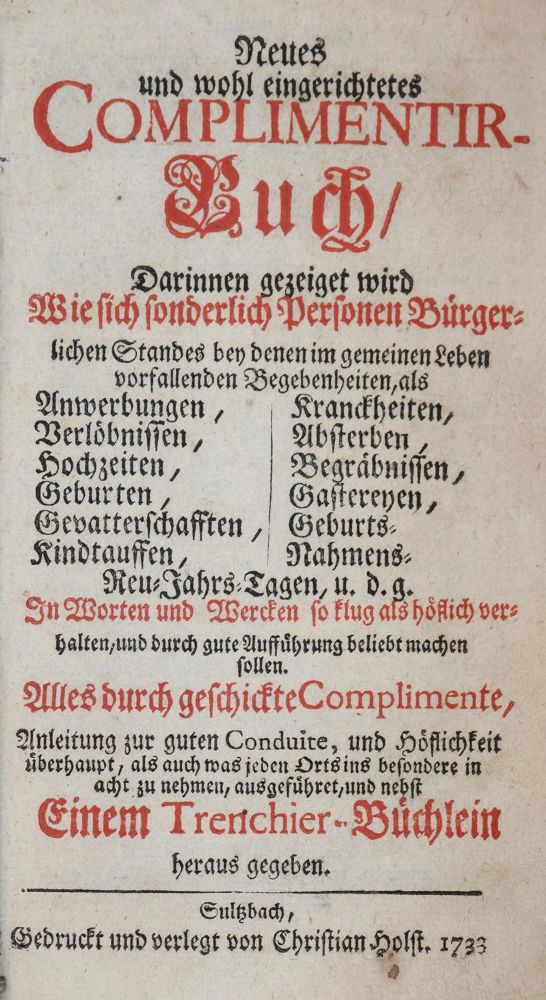 Neues
und wohl eingerichtetes
COMPLIMENTIR-
Buch/
Darinnen gezeiget wird
Wie sich sonderlich Personen Bürger-
lichen Standes bey denen im gemeinen Leben
vorfallenden Begebenheiten, als
Anwerbungen,
Verlöbnissen,
Hochzeiten,
Geburten,
Gevatterschafften,
Kindtauffen,
Kranckheiten,
Absterben,
Begräbnissen,
Gastereyen,
Geburts-
Nahmens-
Neu-Jahrs-Tagen, u. d. g.
In Worten und Wercken so klug als höflich ver-
halten, und durch gute Aufführung beliebt machen
sollen.
Alles durch geschickte Complimente,
Anleitung zur guten Conduite, und Höflichkeit
überhaupt, als auch was jeden Orts ins besondere in
acht zu nehmen, ausgeführet, und nebst
Einem Trenchier-Büchlein
heraus gegeben.
Sultzbach,
Gedruckt und verlegt von Christian Holst. 1733